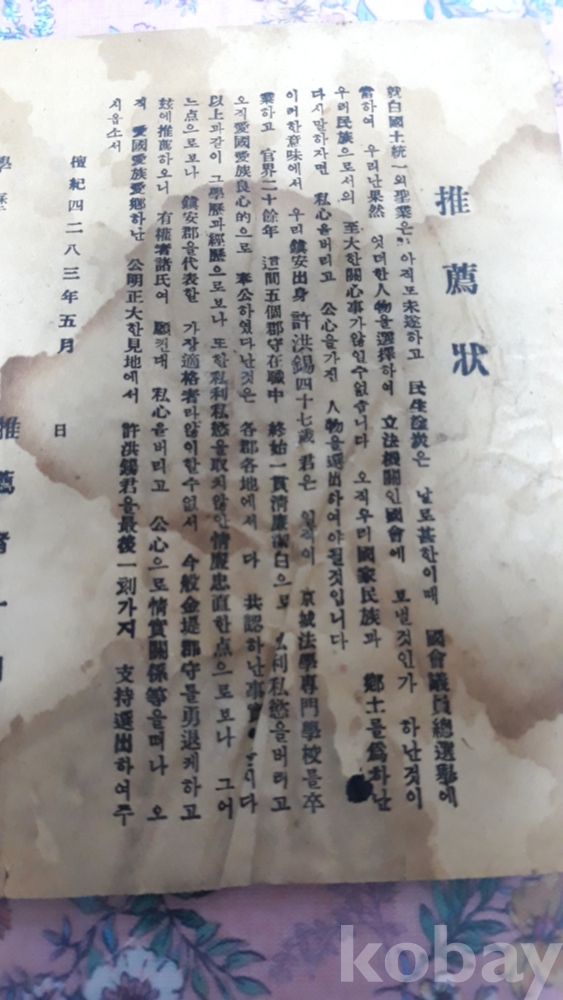 推薦狀
就白國土統一의聖業은 아직도未遂하고 民生塗炭은 날로甚한이때 國會議員總選擧에
當하여 우리난果然 엇더한人物을選擇하여 立法機關인國會에 보낼것인가 하난것이
우리民族으로서의 至大한關心事가않일수없습니다 오직우리國家民族과 鄕土를爲하난
다시말하자면 私心을버리고 公心을가진 人物을選出하여야될것입니다
이러한意味에서 우리鎭安出身 許洪錫四十七歲 君은 일직이 京城法學專門學校를卒
業하고 官界二十餘年 這間五個郡守在職中 終始一貫淸廉潔白으로 私利私慾을버리고
오직愛國愛族良心的으로 奉公하였다난것은 各郡各地에서 다 共認하난事實
以上과같이 그學歷과經歷으로보나 또한私利私慾을取치않안淸廉忠直한点으로보나 그어
느点으로보나 鎭安郡을代表할 가장適格者라않이할수없서 今般金堤郡守를勇退케하고
玆에推薦하오니 有權者諸氏여 願컨대 私心을버리고 公心으로情實關係等을떠나 오
직 愛國愛族愛鄕하난 公明正大한見地에서 許洪錫君을最後一刻가지 支持選出하여주
시옵소서
檀紀四二八三年五月 日
推薦者一同
kobay